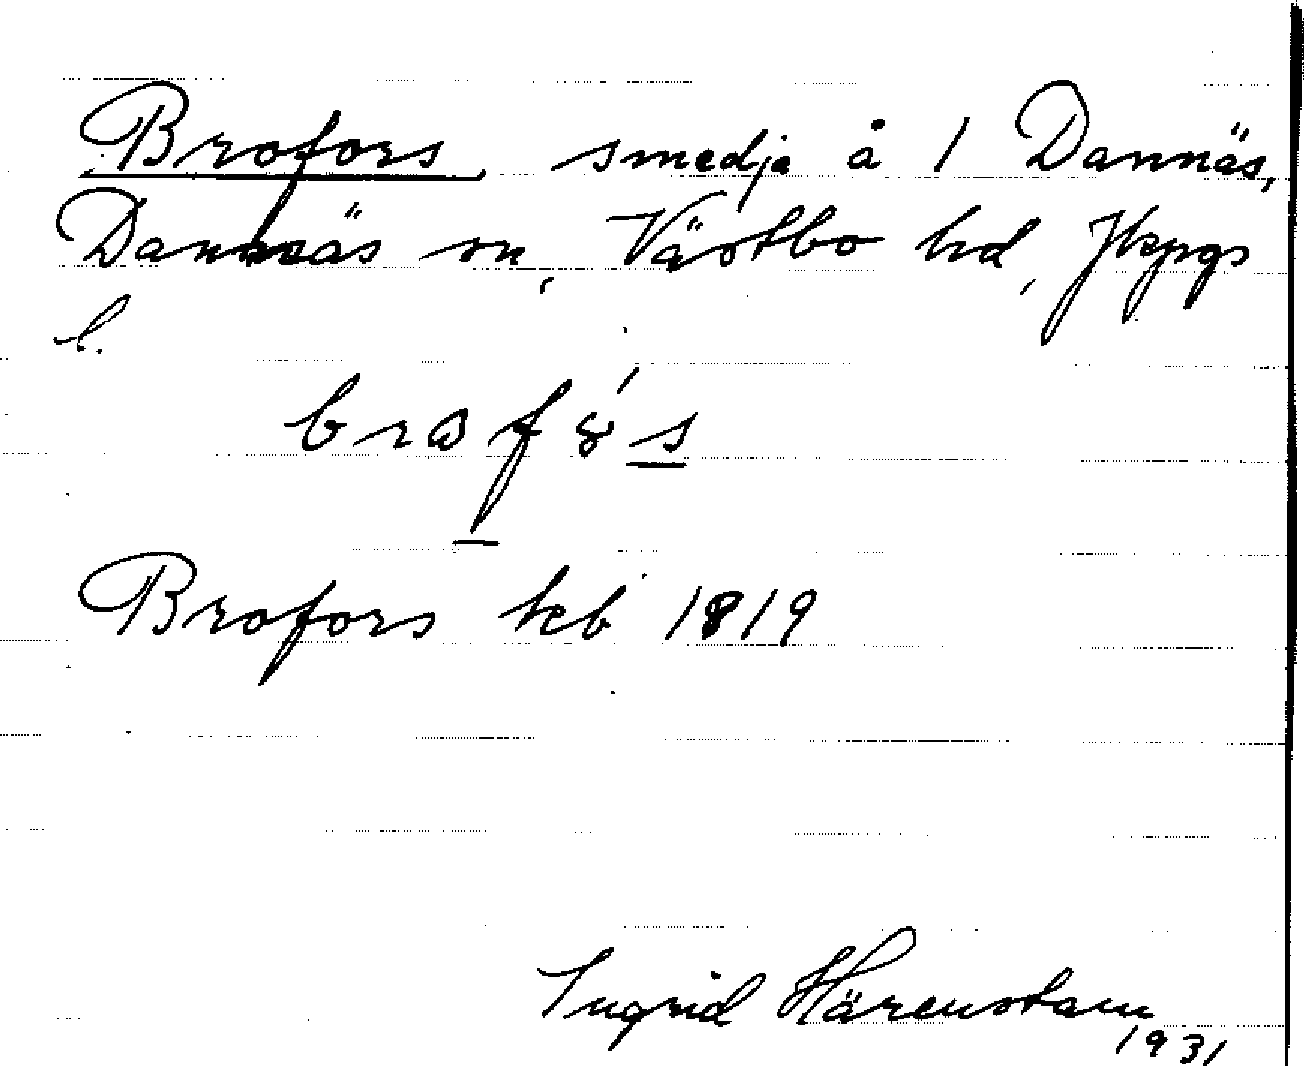 Brofors, smedja å 1 Dannäs,
Dannäs sn, Västbo hd, Jkpgs
l.
Brofors kb 1819
Ingrid Härenstam
1931